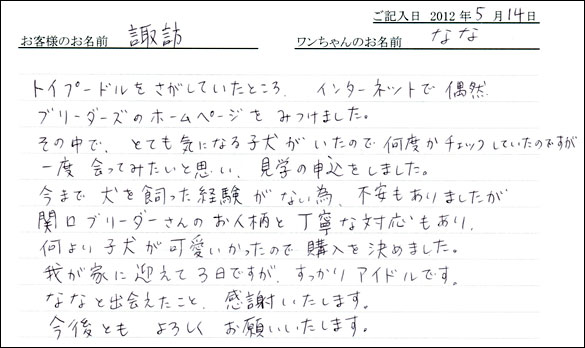 ご記入日 2012年5月14日
お客様のお名前 諏訪 ワンちゃんのお名前 なな
トイプードルをさがしていたところ、インターネットで偶然
ブリーダーズのホームページをみつけました。
その中で、とても気になる子犬がいたので何度かチェックしていたのですが
一度会ってみたいと思い、見学の申込をしました。
今まで犬を飼った経験がない為、不安もありましたが
関口ブリーダーさんのお人柄と丁寧な対応もあり、
何より子犬が可愛いかったので購入を決めました。
我が家に迎えて3日ですが、すっかりアイドルです。
ななと出会えたこと、感謝いたします。
今後ともよろしくお願いいたします。